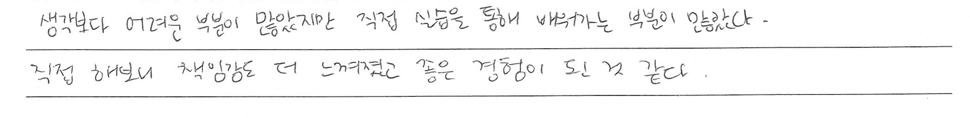 생각보다 어려운 부분이 많았지만 직접 실습을 통해 배워가는 부분이 많았다.
직접 해보니 책임감도 더 느껴졌고 좋은 경험이 된 것 같다.